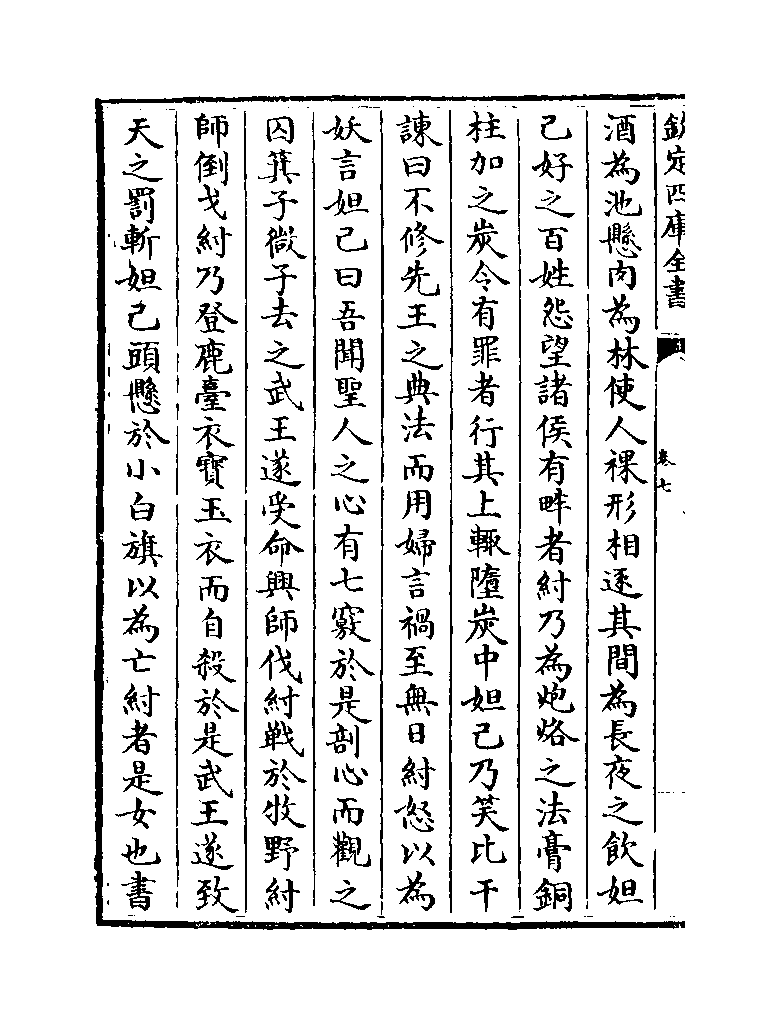 欽定四庫全書
卷七
酒為池懸肉為林使人裸形相逐其間為長夜之飲妲
己好之百姓怨望諸侯有畔者紂乃為炮烙之法膏銅
柱加之炭令有罪者行其上輒墮炭中妲己乃笑比干
諫曰不修先王之典法而用婦言禍至無日紂怒以為
妖言妲己曰吾聞聖人之心有七竅於是剖心而觀之
囚箕子微子去之武王遂受命興師伐紂戰於牧野紂
師倒戈紂乃登鹿臺衣寶玉衣而自殺於是武王遂致
天之罰斬妲己頭懸於小白旗以為亡紂者是女也書